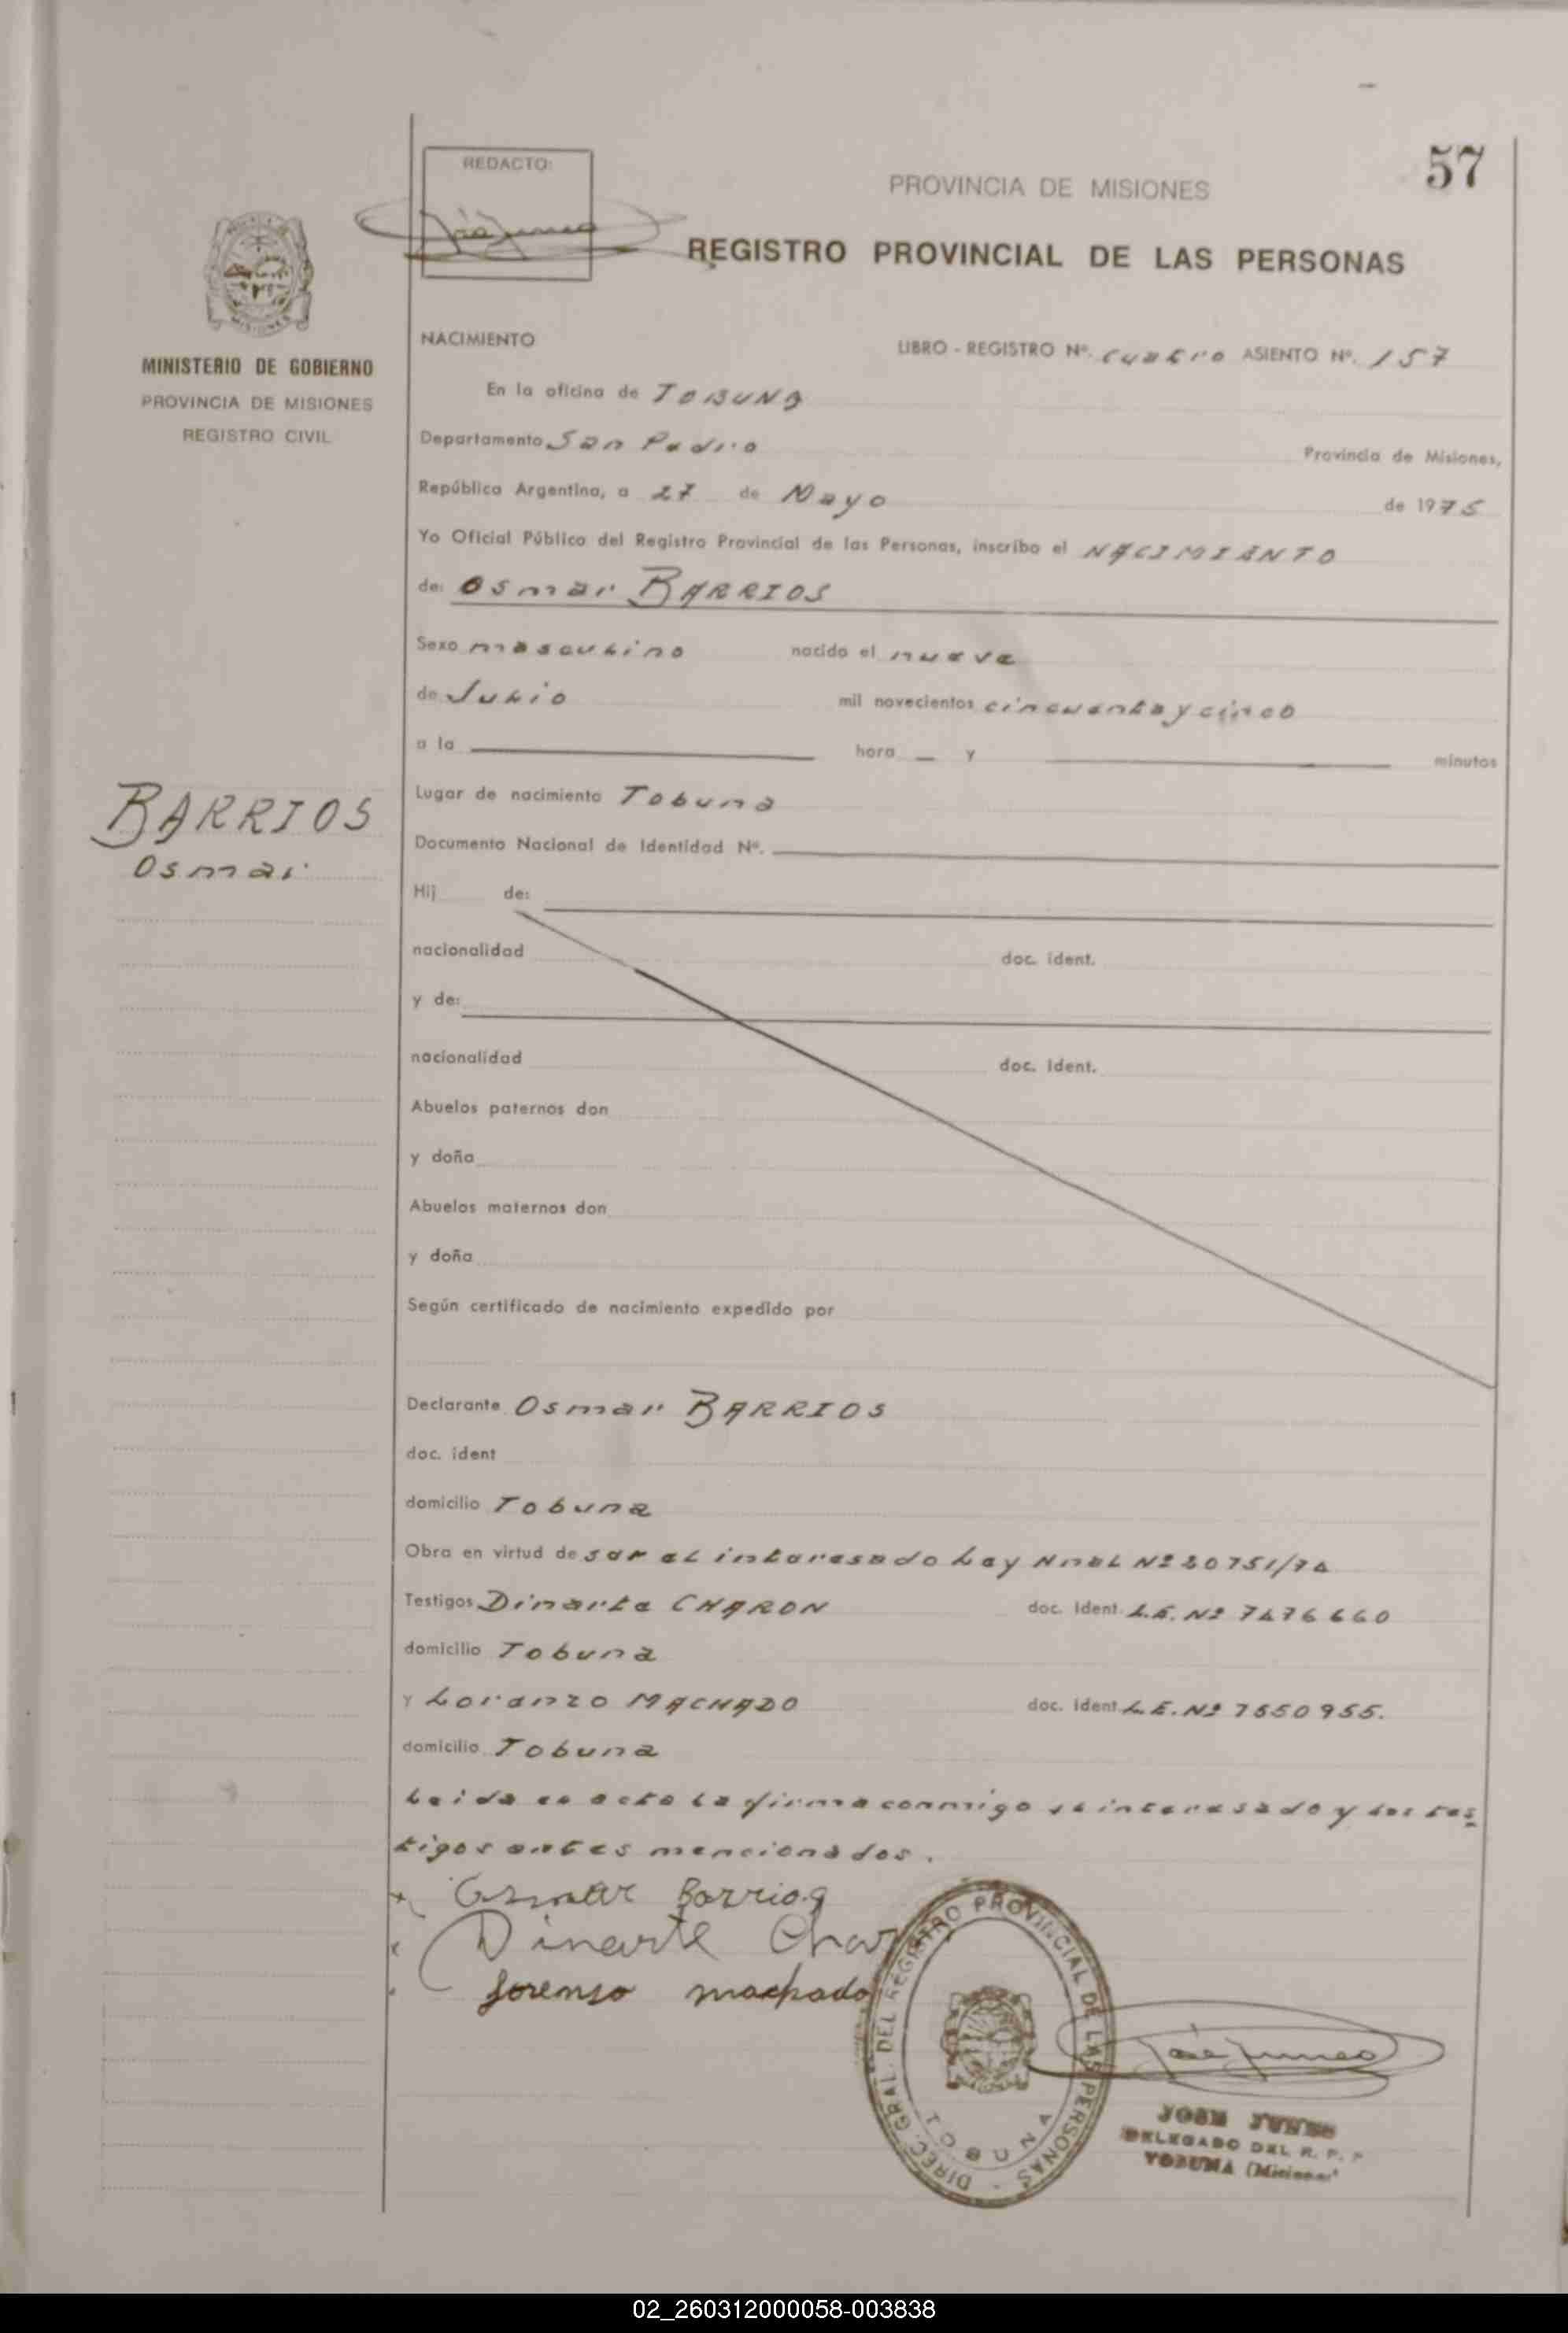 57
REDACTO:
PROVINCIA DE MISIONES
REGISTRO PROVINCIAL DE LAS PERSONAS
MISIONES
MINISTERIO DE GOBIERNO
PROVINCIA DE MISIONES
REGISTRO CIVIL
NACIMIENTO LIBRO - REGISTRO Nº. cuatro ASIENTO Nº. 157
En la oficina de TOBUNA
Departamento San Pedro Provincia de Misiones,
República Argentina, a 27 de Mayo de 1975
Yo Oficial Público del Registro Provincial de las Personas, inscribo el NACIMIENTO
de: Osmar BARRIOS
Sexo masculino nacido el nueve
de Julio mil novecientos cincuenta y cinco
a la hora y minutos
BARRIOS
Osmar
Lugar de nacimiento Tobuna
Documento Nacional de Identidad Nº.
Hij de:
nacionalidad doc. ident.
y de:
nacionalidad doc. Ident.
Abuelos paternos don
y doña
Abuelos maternos don
y doña
Según certificado de nacimiento expedido por
Declarante Osmar BARRIOS
doc. ident
domicilio Tobuna
Obra en virtud de ser el interesado Ley Nnal Nº 20751/74
Testigos Dinarte CHARON doc. Ident. L.E. Nº 7476660
domicilio Tobuna
y Lorenzo MACHADO doc. ident L.E. Nº 7550955.
domicilio Tobuna
Leida el acta la firma conmigo el interesado y los tes
tigos antes mencionados.
Osmar Barrios
Dinarte Char
Lorenso machado
DIREC. GRAL. DEL REGISTRO PROVINCIAL DE LAS PERSONAS -
TOBUNA
JOSE
DELEGADO DEL R. P. P
TOBUNA (Misiones)
02_260312000058-003838